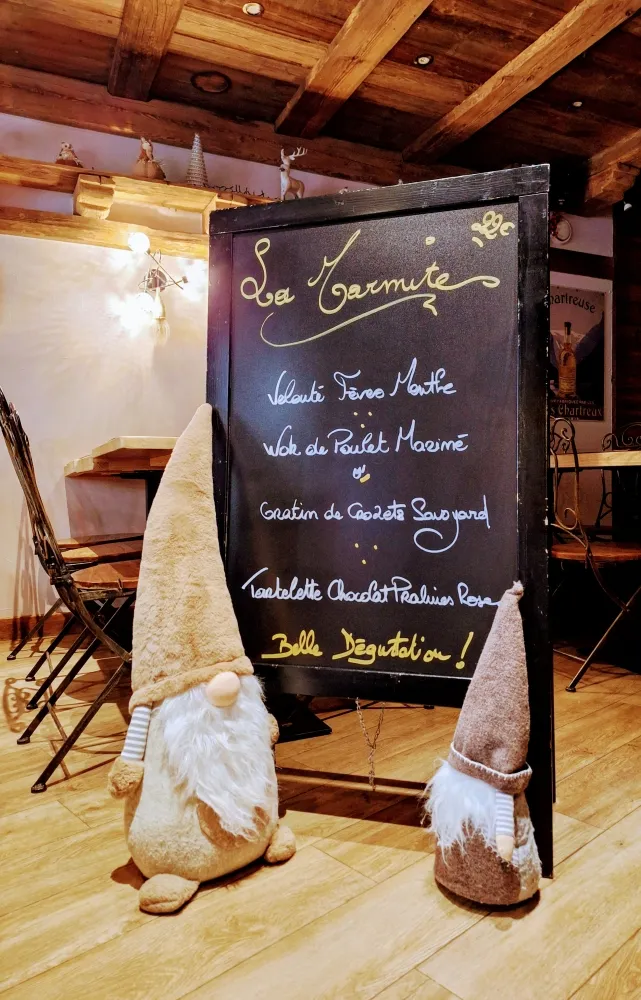 La Marmite
Velouté Fèves Menthe
Wok de Poulet Mariné
ou
Gratin de Crozets Savoyard
Tartelette Chocolat Pralines Rose
Belle Dégustation !
hartreuse
Chartreux